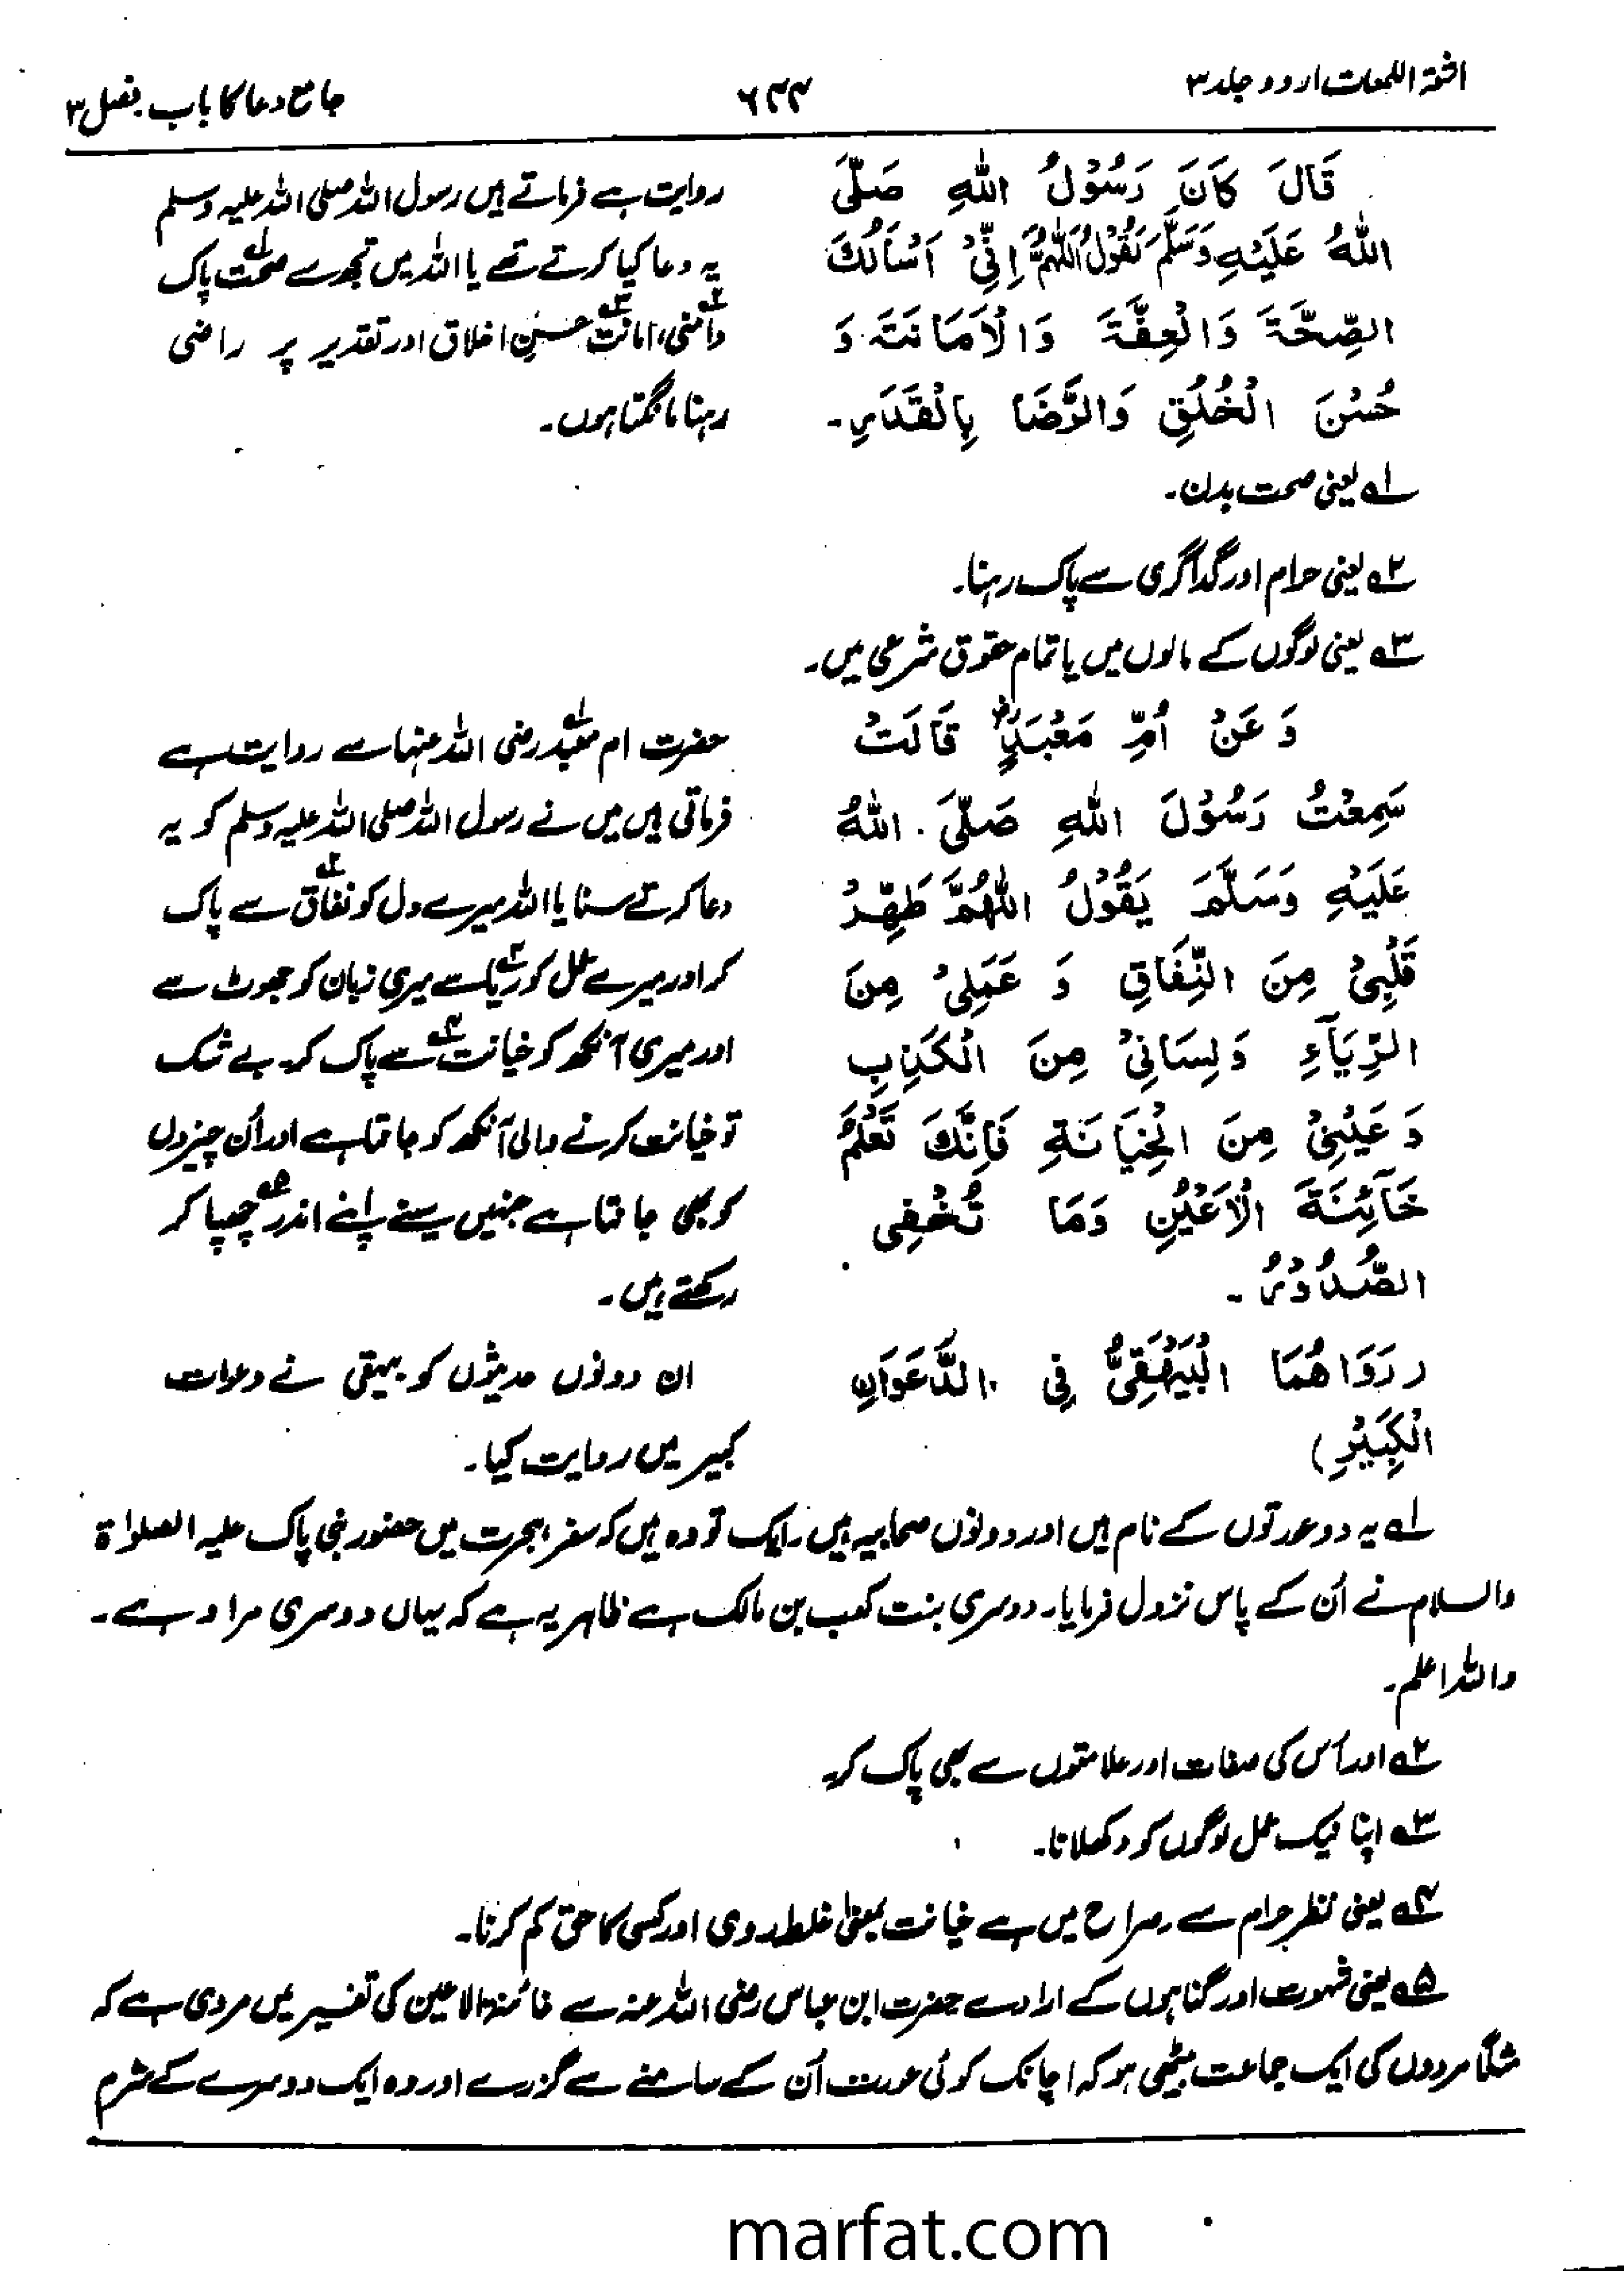 اشعۃ اللمعات اردو جلد ۳
۶۴۴
جامع دعا کا باب۔ فصل ۳
قَالَ كَانَ رَسُوْلُ اللّٰهِ صَلَّى
اللّٰهُ عَلَيْهِ وَسَلَّمَ يَقُوْلُ اَللّٰهُمَّ اِنِّيْ اَسْاَلُكَ
الصِّحَّةَ وَالْعِفَّةَ وَالْاَمَانَةَ وَ
حُسْنَ الْخُلُقِ وَالرَّضَا بِالْقَدَرِ۔
روایت ہے فرماتے ہیں رسول اللہ صلی اللہ علیہ وسلم
یہ دعا کیا کرتے تھے یا اللہ میں تجھ سے صحت۱ پاک
دامنی۲، امانت۳ حسن اخلاق اور تقدیر پر راضی
رہنا مانگتا ہوں۔
۱ یعنی صحت بدن۔
۲ یعنی حرام اور گداگری سے پاک رہنا۔
۳ یعنی لوگوں کے مالوں میں یا تمام حقوق شرعی میں۔
وَعَنْ اُمِّ مَعْبَدٍ قَالَتْ
سَمِعْتُ رَسُوْلَ اللّٰهِ صَلَّى اللّٰهُ
عَلَيْهِ وَسَلَّمَ يَقُوْلُ اللّٰهُمَّ طَهِّرْ
قَلْبِيْ مِنَ النِّفَاقِ وَ عَمَلِيْ مِنَ
الرِّيَآءِ وَلِسَانِيْ مِنَ الْكَذِبِ
وَعَيْنِيْ مِنَ الْخِيَانَةِ فَاِنَّكَ تَعْلَمُ
خَآئِنَةَ الْاَعْيُنِ وَمَا تُخْفِى
الصُّدُوْرُ۔
(رَوَاهُمَا الْبَيْهَقِيُّ فِي الدَّعَوَاتِ
الْكَبِيْرِ)
حضرت ام معبد۱ رضی اللہ عنہا سے روایت ہے
فرماتی ہیں میں نے رسول اللہ صلی اللہ علیہ وسلم کو یہ
دعا کرتے سنا یا اللہ میرے دل کو نفاق۲ سے پاک
کر اور میرے عمل کو ریا۳ سے میری زبان کو جھوٹ سے
اور میری آنکھ کو خیانت۴ سے پاک کر۔ بے شک
تو خیانت کرنے والی آنکھ کو جانتا ہے اور اُن چیزوں
کو بھی جانتا ہے جنہیں سینے اپنے اندر۵ چھپا کر
رکھتے ہیں۔
ان دونوں حدیثوں کو بیہقی نے دعوات
کبیر میں روایت کیا۔
۱ یہ دو عورتوں کے نام ہیں اور دونوں صحابیہ ہیں۔ ایک تو وہ ہیں کہ سفر ہجرت میں حضور نبی پاک علیہ الصلوٰۃ
والسلام نے اُن کے پاس نزول فرمایا۔ دوسری بنت کعب بن مالک ہے ظاہر یہ ہے کہ یہاں دوسری مراد ہے۔
واللہ اعلم۔
۲ اور اُس کی صفات اور علامتوں سے بھی پاک کر۔
۳ اپنا نیک عمل لوگوں کو دکھلانا۔
۴ یعنی نظر حرام سے۔ صراح میں ہے خیانت بمعنیٰ غلط روی اور کسی کا حق کم کرنا۔
۵ یعنی شہوت اور گناہوں کے ارادے حضرت ابن عباس رضی اللہ عنہ سے خائنۃ الاعین کی تفسیر میں مروی ہے کہ
مثلًا مردوں کی ایک جماعت بیٹھی ہو کہ اچانک کوئی عورت اُن کے سامنے سے گزرے اور وہ ایک دوسرے کے شرم
marfat.com